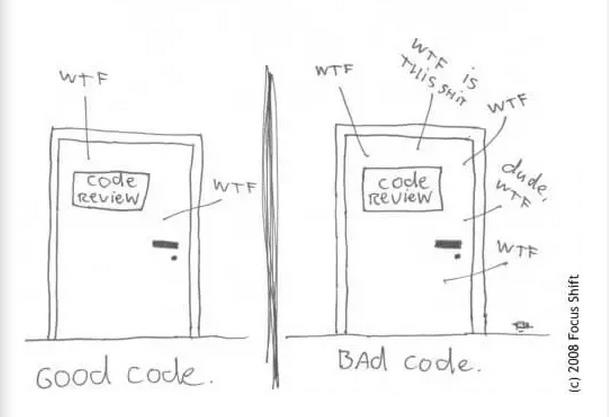 WTF
code
REVIEW
WTF
GOOD code.
WTF
WTF is
THIS SHIT
WTF
code
REVIEW
dude,
WTF
WTF
BAd code.
(c) 2008 Focus Shift